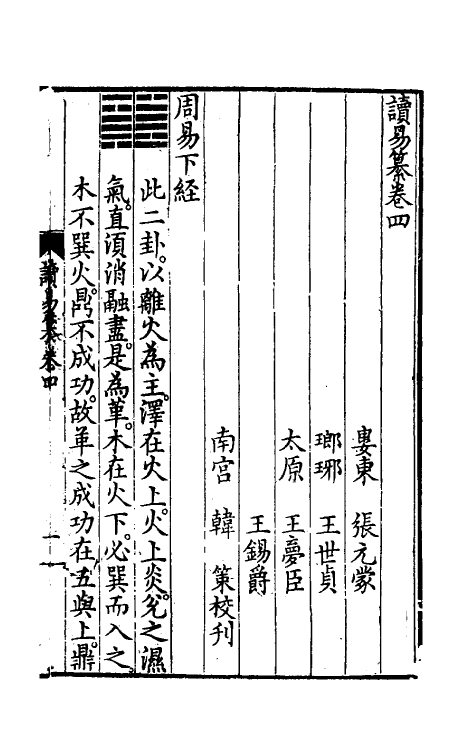 讀易纂卷四
婁東 張元蒙
瑯琊 王世貞
太原 王夢臣
王錫爵
南宫 韓 策校刋
周易下経
此二卦。以離火為主。澤在火上。火上炎。兊之濕
氣。直湏消融盡。是為革。木在火下。必巽而入之。
木不巽火。鼎不成功。故革之成功在五與上。鼎
讀易纂卷四
一